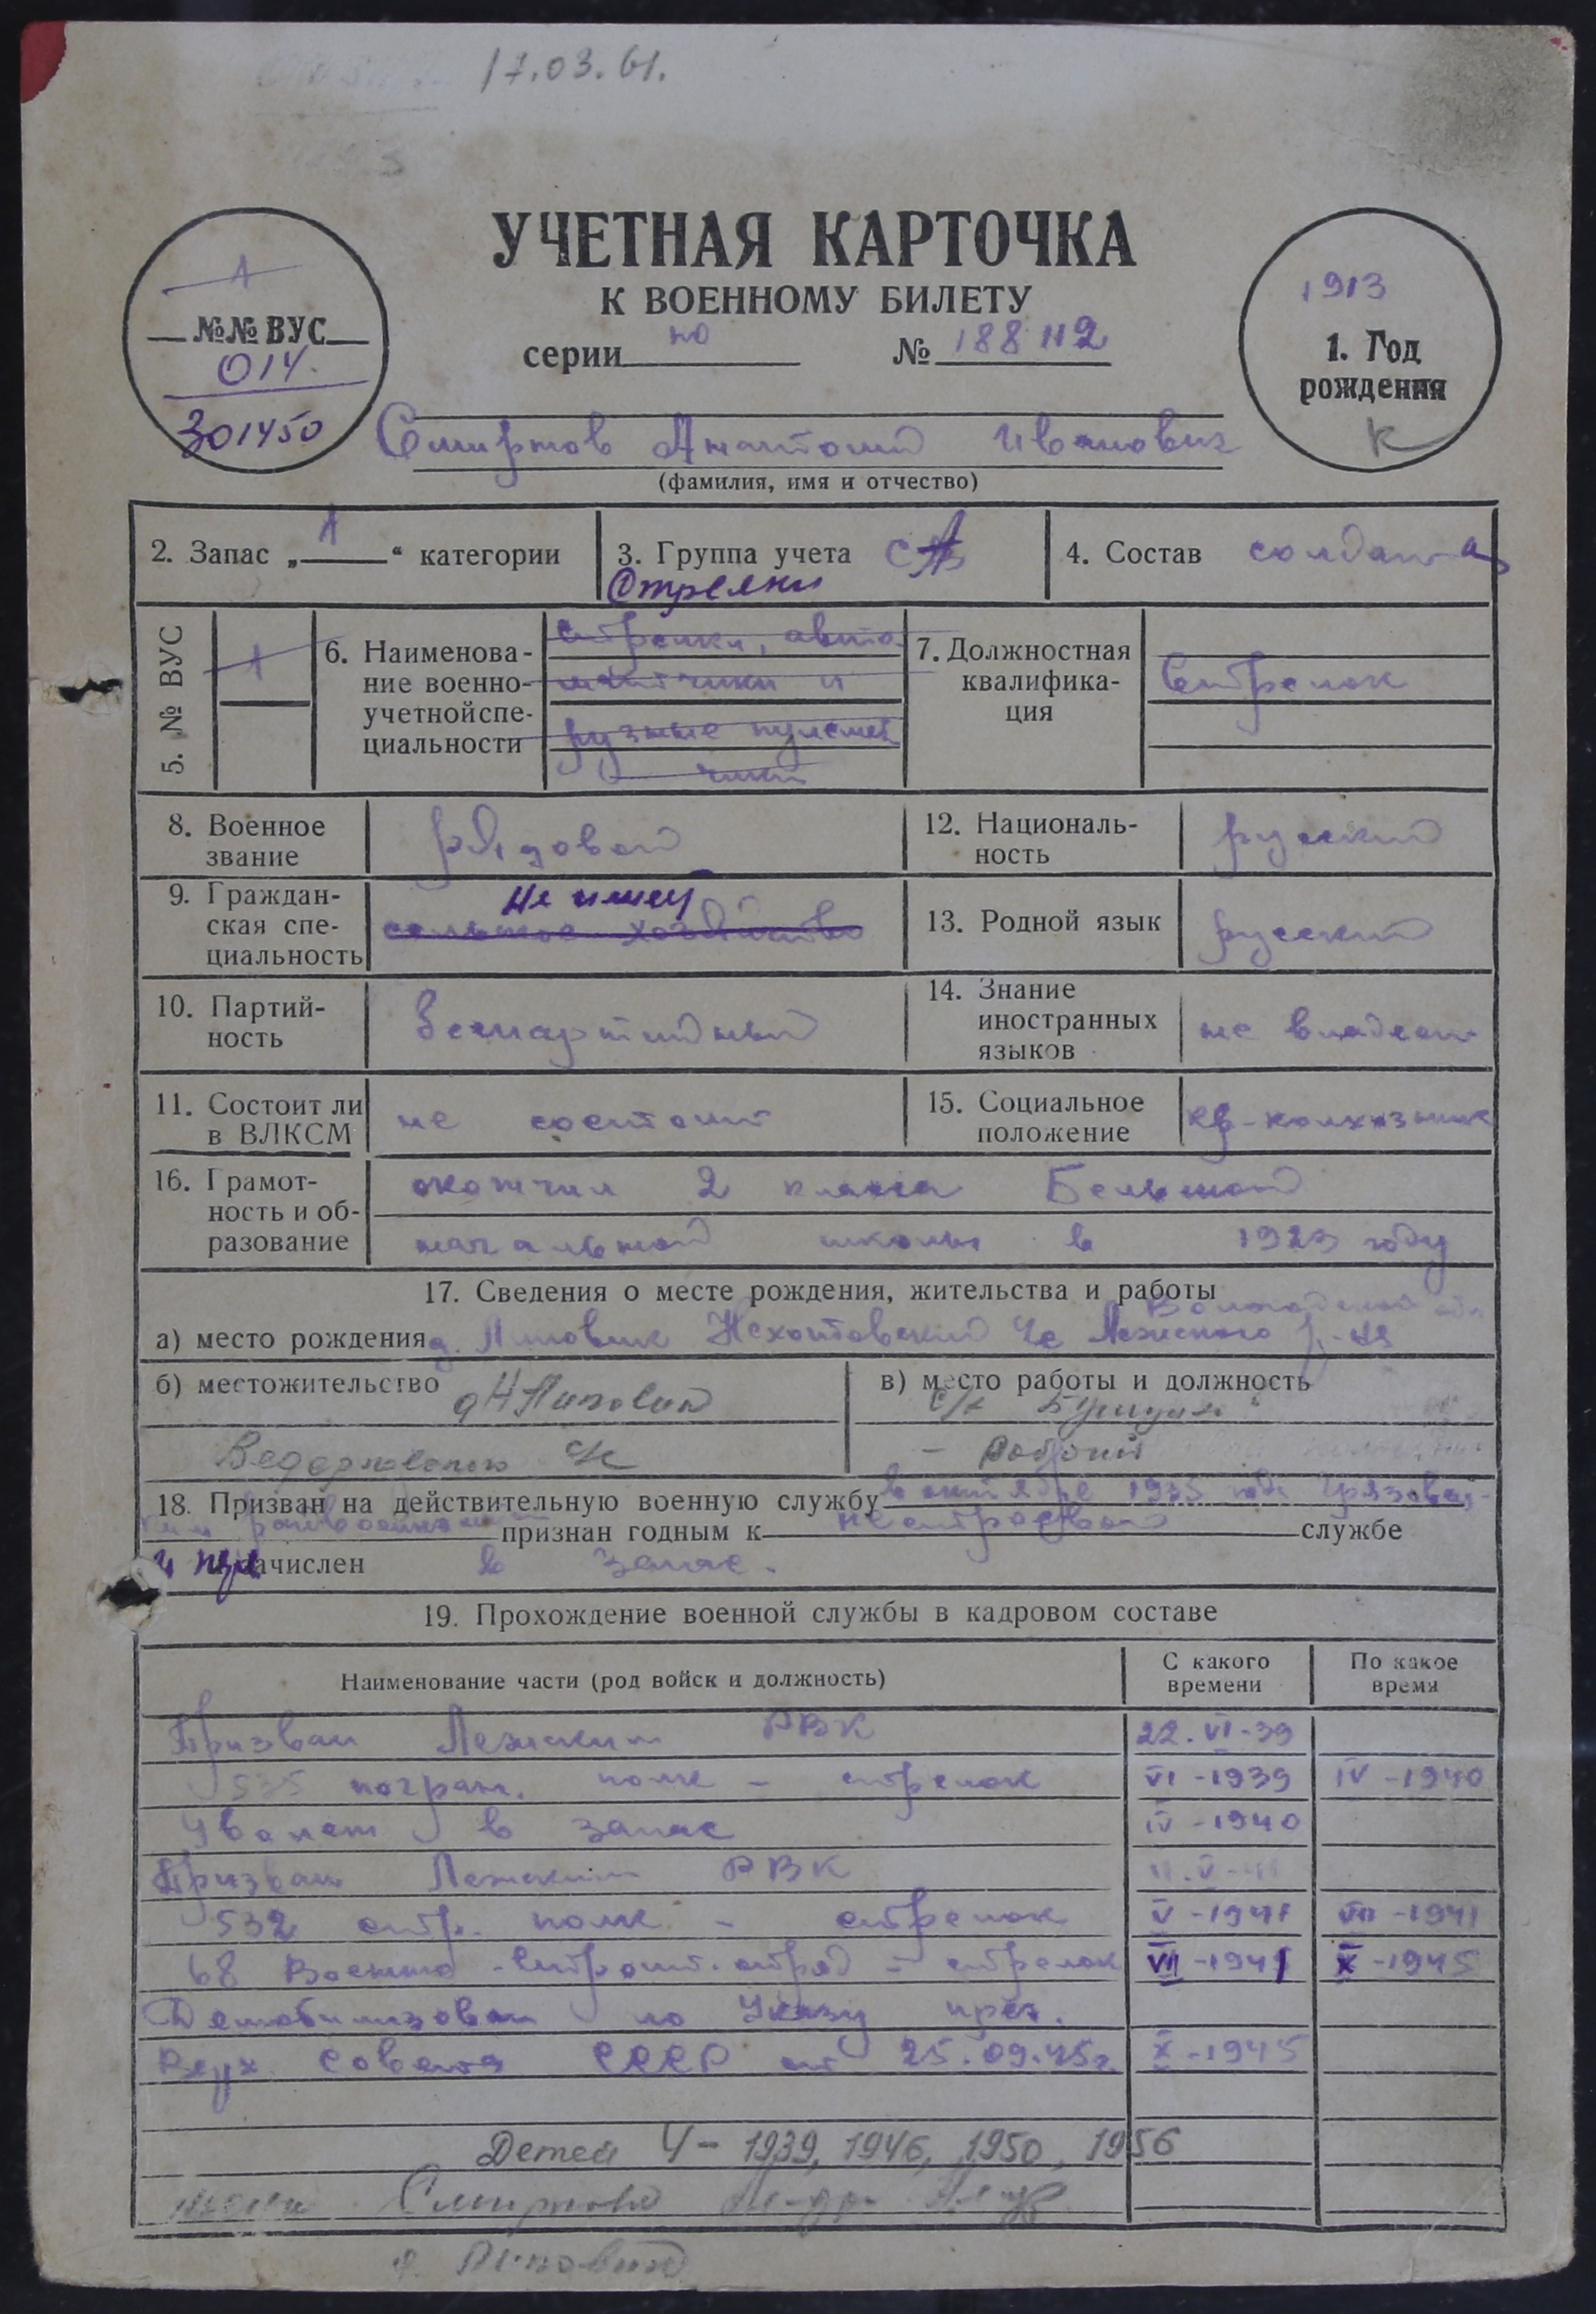 17.03.61.
УЧЕТНАЯ КАРТОЧКА
К ВОЕННОМУ БИЛЕТУ
серии но № 188112
1
№№ ВУС
014.
301450
1913
1. Год
рождения
К
Смирнов Анатолий Иванович
(фамилия, имя и отчество)
2. Запас „ 1 “ категории
3. Группа учета СА
4. Состав солдаты
Стрелки
5. № ВУС
1
6. Наименова-
ние военно-
учетной спе-
циальности
Стрелки, авто-
матчики и
ручные пулемет
чики
7. Должностная
квалифика-
ция
Стрелок
8. Военное
звание
рядовой
12. Националь-
ность
русский
9. Граждан-
ская спе-
циальность
Не имеет
сельское хозяйство
13. Родной язык
русский
10. Партий-
ность
беспартийный
14. Знание
иностранных
языков
не владеет
11. Состоит ли
в ВЛКСМ
не состоит
15. Социальное
положение
кр-колхозник
16. Грамот-
ность и об-
разование
окончил 2 класса
начальной школы в 1923 году
17. Сведения о месте рождения, жительства и работы
Вологодской обл
а) место рождения д. Лежского р-на
б) местожительство
в) место работы и должность
- рабочий
18. Призван на действительную военную службу в октябре 1935 года Грязовец-
ким райвоенкоматом признан годным к нестроевой службе
и зачислен в запас.
19. Прохождение военной службы в кадровом составе
Наименование части (род войск и должность)
С какого
времени
По какое
время
Призван Лежским РВК 22.VI-39
535 погран. полк - стрелок VI-1939 IV-1940
Уволен в запас IV-1940
Призван Лежским РВК 11.V-41
532 стр. полк - стрелок V-1941 VII-1941
68 Военно-строит. отряд - стрелок VII-1941 X-1945
Демобилизован по Указу през.
Верх. Совета СССР от 25.09.45г. X-1945
Детей 4- 1939, 1946, 1950, 1956
жена Смирнова